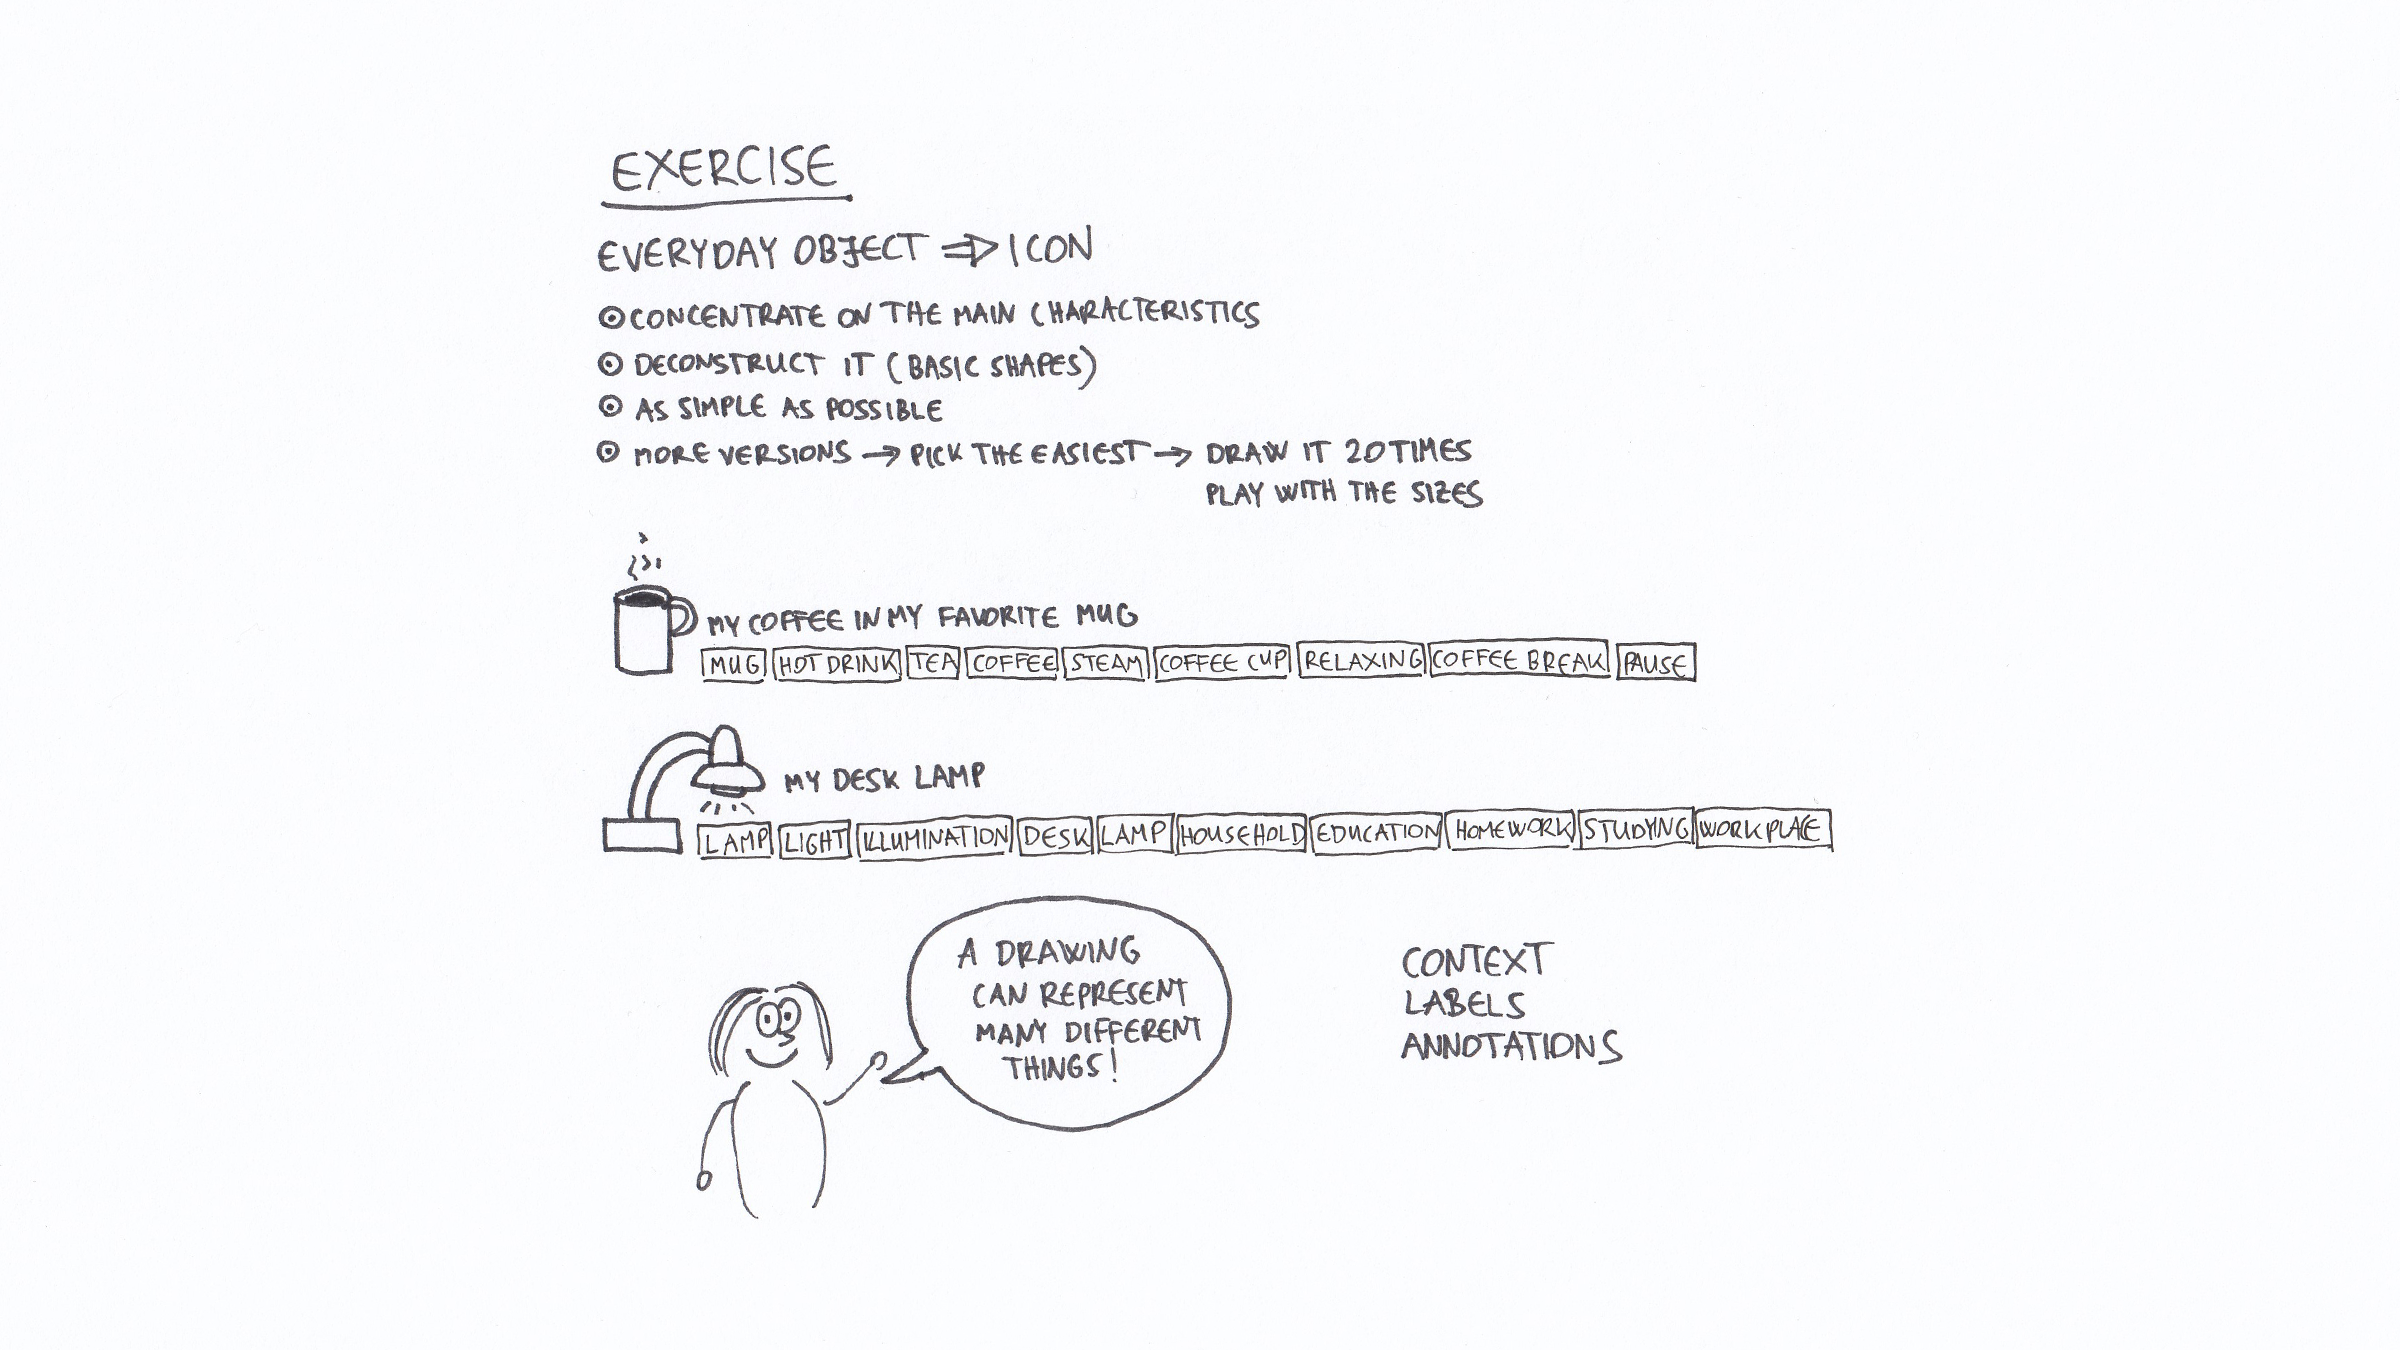 EXERCISE
EVERYDAY OBJECT ⇒ ICON
⊙ CONCENTRATE ON THE MAIN CHARACTERISTICS
⊙ DECONSTRUCT IT (BASIC SHAPES)
⊙ AS SIMPLE AS POSSIBLE
⊙ MORE VERSIONS → PICK THE EASIEST → DRAW IT 20 TIMES
PLAY WITH THE SIZES
MY COFFEE IN MY FAVORITE MUG
MUG HOT DRINK TEA COFFEE STEAM COFFEE CUP RELAXING COFFEE BREAK PAUSE
MY DESK LAMP
LAMP LIGHT ILLUMINATION DESK LAMP HOUSEHOLD EDUCATION HOMEWORK STUDYING WORKPLACE
A DRAWING
CAN REPRESENT
MANY DIFFERENT
THINGS!
CONTEXT
LABELS
ANNOTATIONS